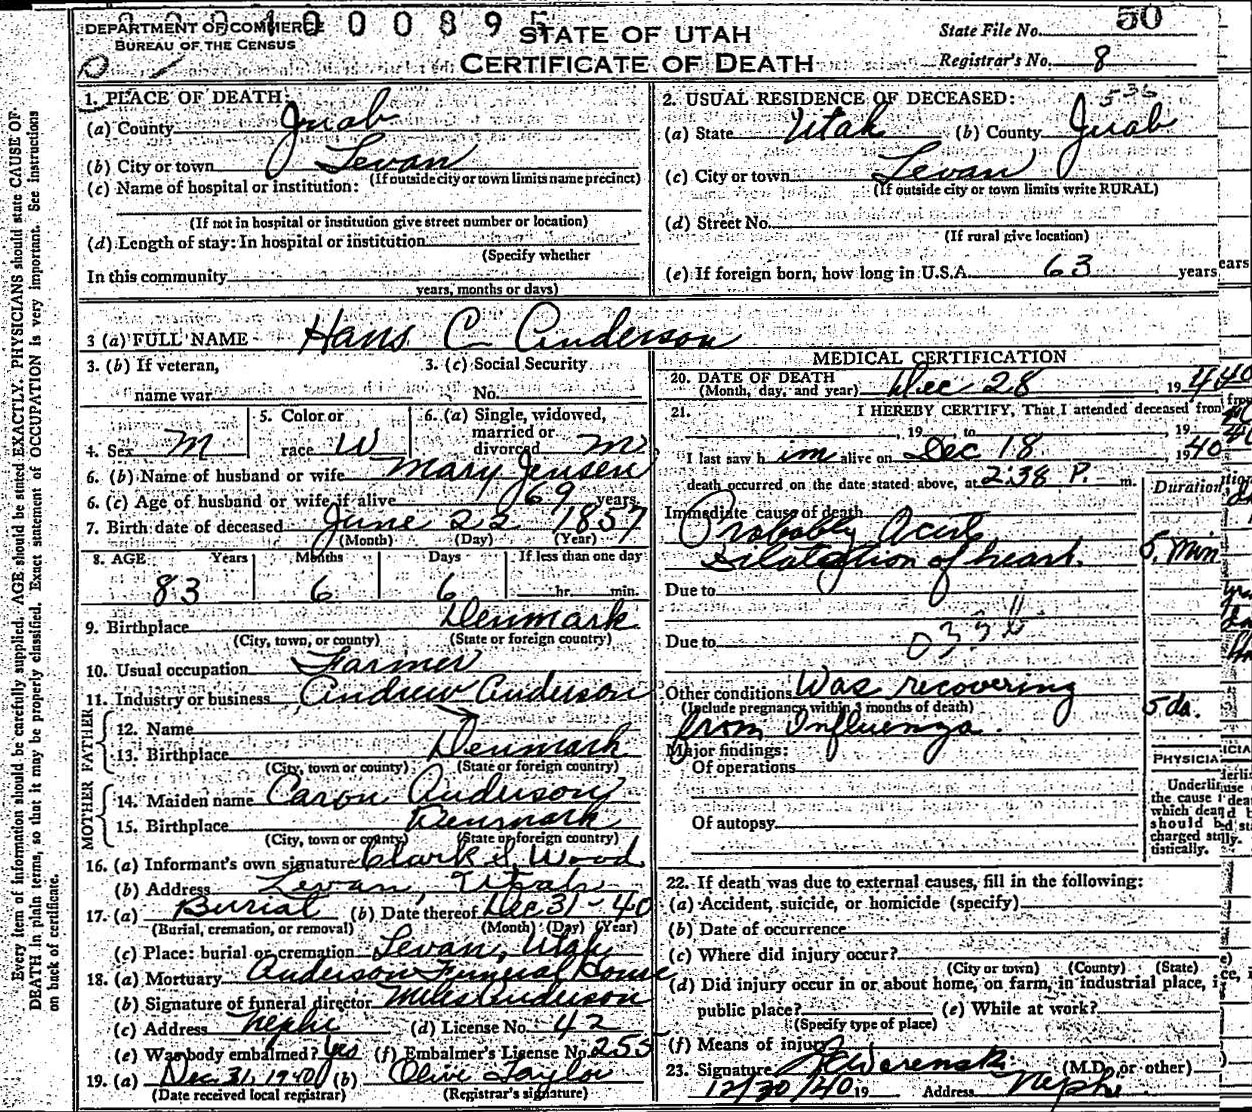 DEPARTMENT OF COMMERCE
BUREAU OF THE CENSUS
0 0 0 1 0 0 0 8 9 5
STATE OF UTAH
CERTIFICATE OF DEATH
State File No. 50
Registrar's No. 8
1. PLACE OF DEATH:
(a) County Juab
(b) City or town Levan
(If outside city or town limits name precinct)
(c) Name of hospital or institution:
(If not in hospital or institution give street number or location)
(d) Length of stay: In hospital or institution
(Specify whether
In this community
years, months or days)
2. USUAL RESIDENCE OF DECEASED: 536
(a) State Utah (b) County Juab
(c) City or town Levan
(If outside city or town limits write RURAL)
(d) Street No.
(If rural give location)
(e) If foreign born, how long in U.S.A. 63 years
3 (a) FULL NAME Hans C Anderson
3. (b) If veteran,
name war
3. (c) Social Security
No.
4. Sex M
5. Color or
race W
6. (a) Single, widowed,
married or
divorced M
6. (b) Name of husband or wife Mary Jensen
6. (c) Age of husband or wife if alive 69 years
7. Birth date of deceased June 22 1857
(Month) (Day) (Year)
8. AGE Years Months Days If less than one day
83 6 6 hr. min.
9. Birthplace Denmark
(City, town, or county) (State or foreign country)
10. Usual occupation Farmer
11. Industry or business Andrew Anderson
FATHER
12. Name
13. Birthplace Denmark
(City, town or county) (State or foreign country)
MOTHER
14. Maiden name Caron Anderson
15. Birthplace Denmark
(City, town or county) (State or foreign country)
16. (a) Informant's own signature Clark S. Wood
(b) Address Levan, Utah
17. (a) Burial (b) Date thereof Dec 31-40
(Burial, cremation, or removal) (Month) (Day) (Year)
(c) Place: burial or cremation Levan, Utah
18. (a) Mortuary Anderson Funeral House
(b) Signature of funeral director Miles Anderson
(c) Address Nephi (d) License No. 42
(e) Was body embalmed? Yes (f) Embalmer's License No. 255
19. (a) Dec. 31, 1940 (b) Olive Taylor
(Date received local registrar) (Registrar's signature)
MEDICAL CERTIFICATION
20. DATE OF DEATH
(Month, day, and year) Dec 28, 1940
21. I HEREBY CERTIFY, That I attended deceased from
, 19 , to , 19
I last saw h im alive on Dec 18 1940
death occurred on the date stated above, at 2:38 P. m.
Duration
Immediate cause of death
Probably Acute
Dilatation of heart. 5 min
Due to
Due to
Other conditions Was recovering
(Include pregnancy within 3 months of death)
from Influenza. 5 da.
Major findings:
Of operations
Of autopsy
PHYSICIA
Underline
the cause
which death
should be
charged
tistically.
22. If death was due to external causes, fill in the following:
(a) Accident, suicide, or homicide (specify)
(b) Date of occurrence
(c) Where did injury occur?
(City or town) (County) (State)
(d) Did injury occur in or about home, on farm, in industrial place, i
public place? (e) While at work?
(Specify type of place)
(f) Means of injury
23. Signature (M.D. or other)
12/30/40 19 Address Nephi
Every item of information should be carefully supplied. AGE should be stated EXACTLY. PHYSICIANS should state CAUSE OF
DEATH in plain terms, so that it may be properly classified. Exact statement of OCCUPATION is very important. See instructions
on back of certificate.